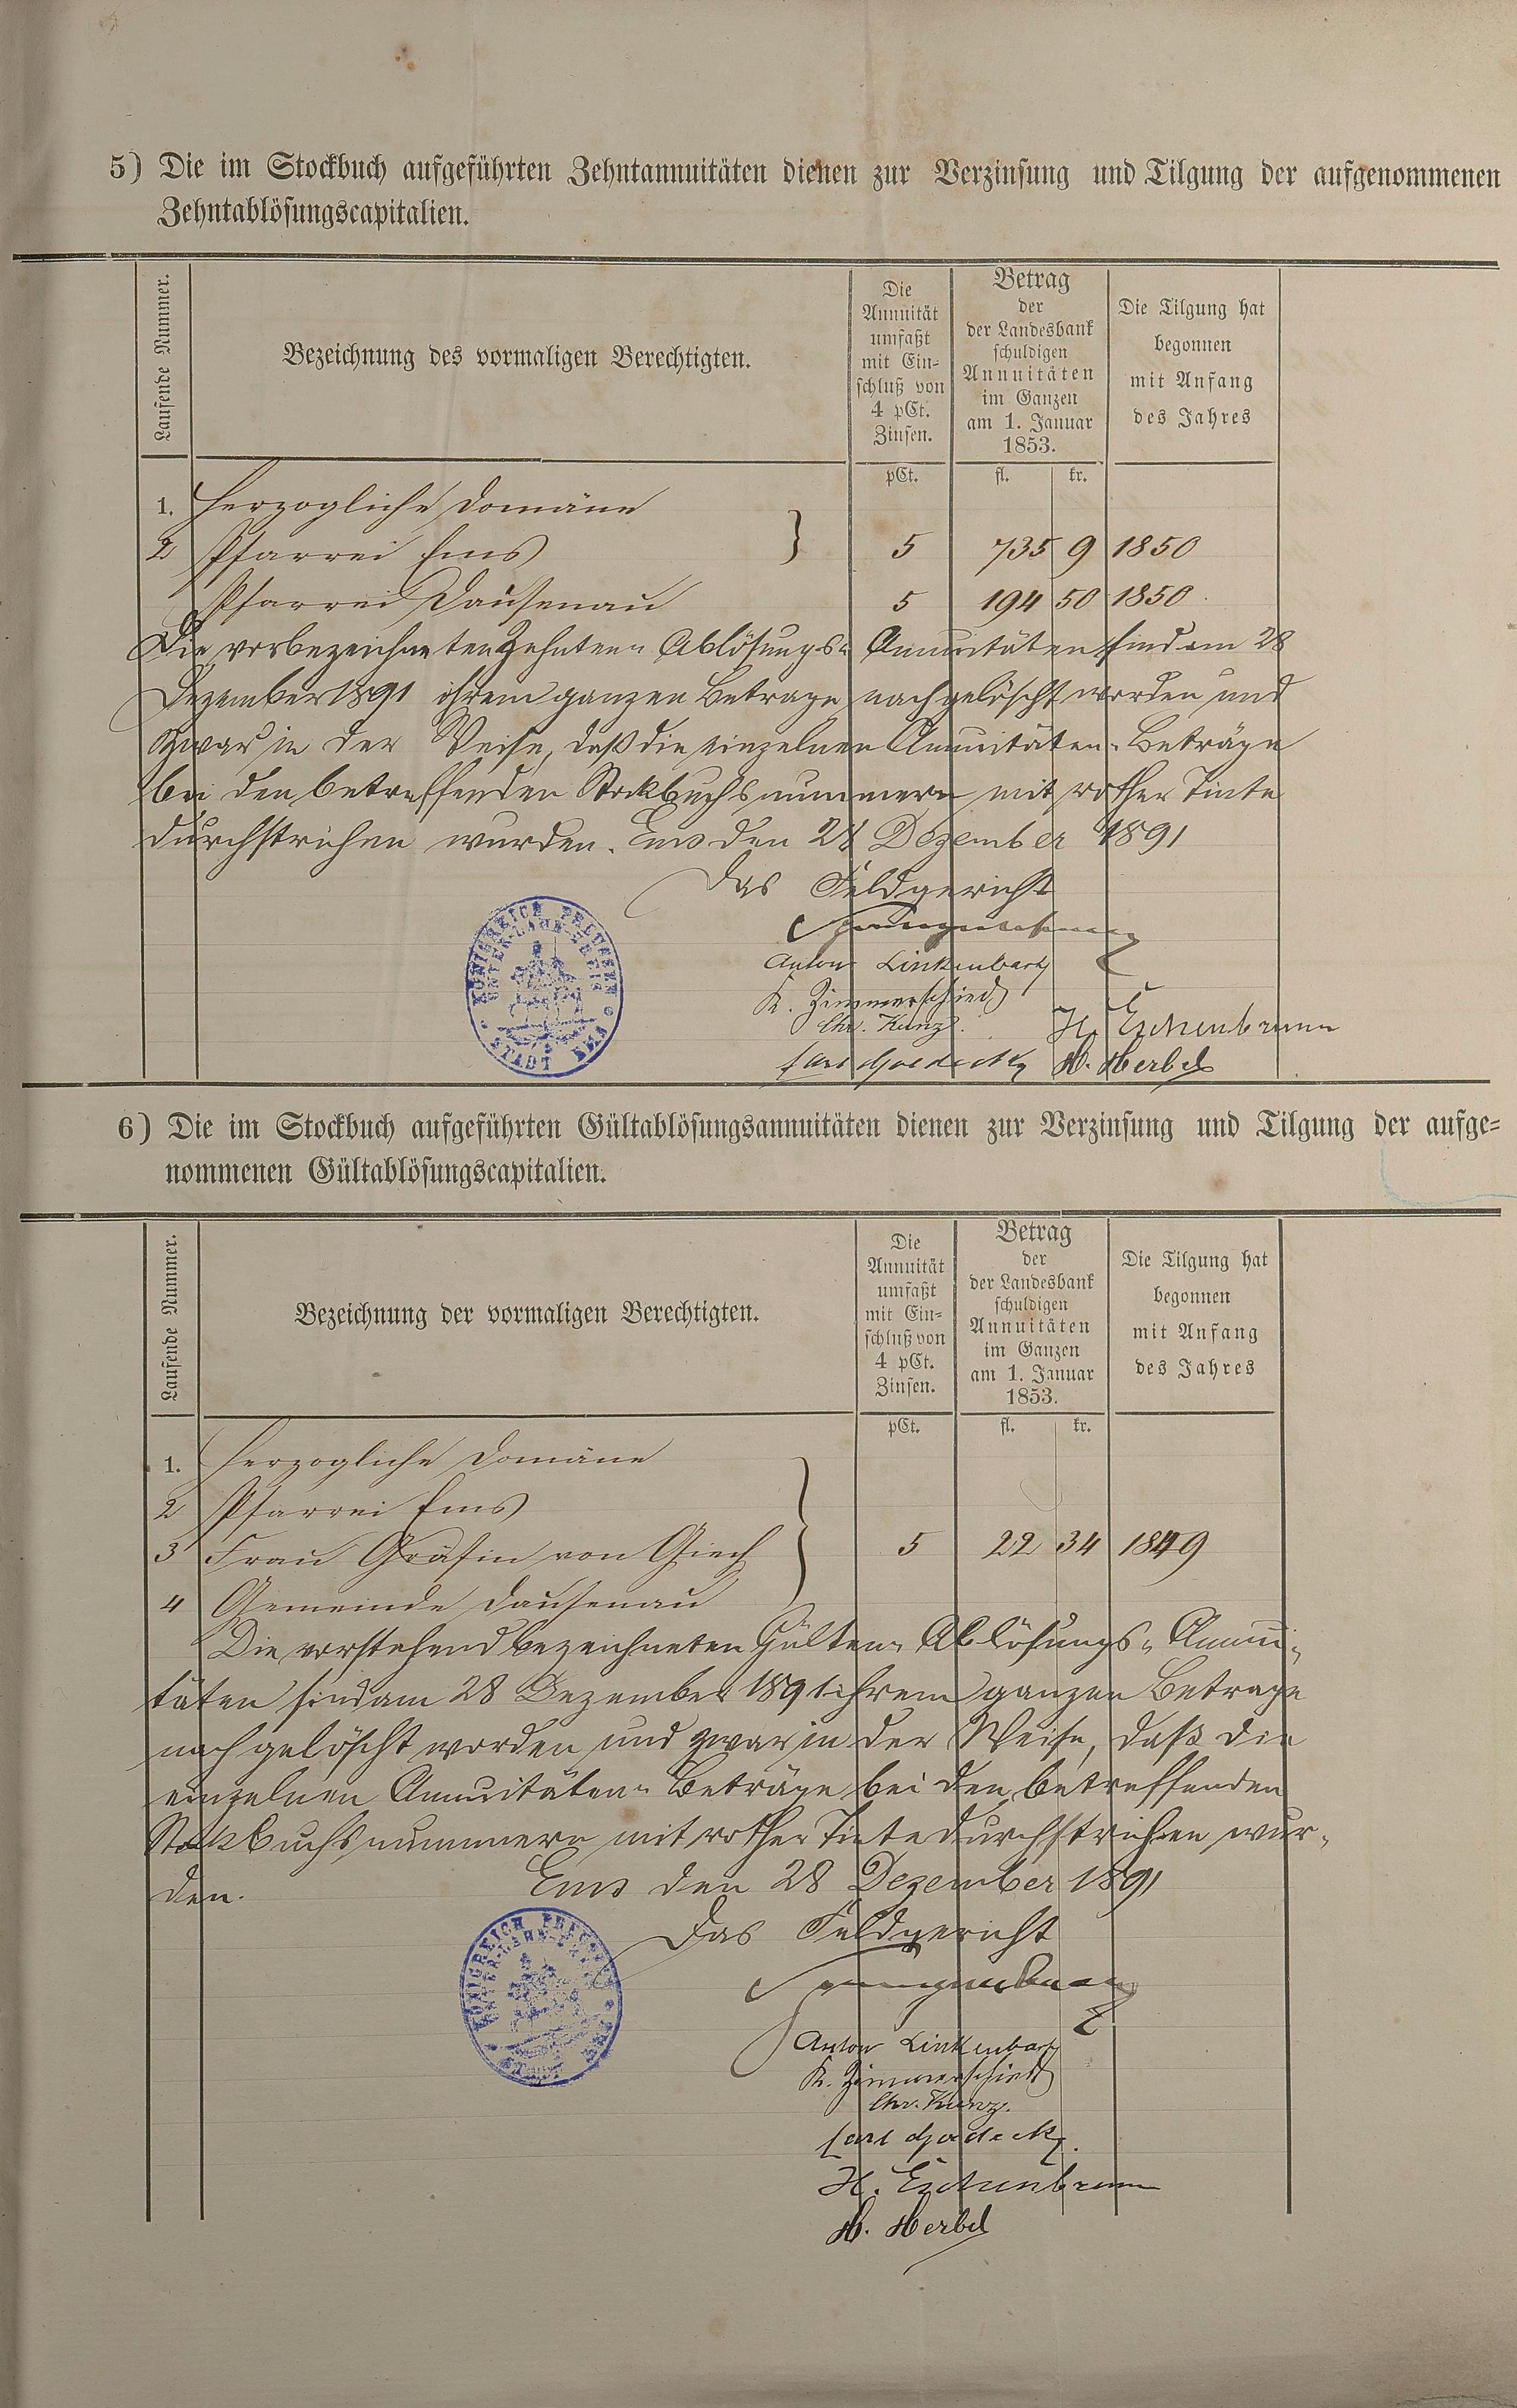 5) Die im Stockbuch aufgeführten Zehntannuitäten dienen zur Verzinsung und Tilgung der aufgenommenen
Zehntablösungscapitalien.
Laufende Nummer.
Bezeichnung des vormaligen Berechtigten.
Die
Annuität
umfaßt
mit Ein-
schluß von
4 pCt.
Zinsen.
Betrag
der
der Landesbank
schuldigen
Annuitäten
im Ganzen
am 1. Januar
1853.
Die Tilgung hat
begonnen
mit Anfang
des Jahres
pCt. fl. kr.
1. Herzogliche Domäne
2 Pfarrei Ems } 5 735 9 1850
Pfarrei Dausenau 5 194 50 1850.
Die vorbezeichneten Zehnten- Ablösungs- Annuitäten sind am 28
Dezember 1891 ihrem ganzen Betrage nach gelöscht worden und
zwar in der Weise, daß die einzelnen Annuitäten-Beträge
bei den betreffenden Stockbuchsnummern mit rother Tinte
durchstrichen wurden. Ems den 28 Dezember 1891
Das Feldgericht
Anton Linkenbach
K. Zimmerschied
Chr. Kunz.
H. Eschenbrenner
Carl Goedecke H. Herbel
KÖNIGREICH PREUSSEN
UNTER-LAHN-KREIS
STADT EMS
6) Die im Stockbuch aufgeführten Gültablösungsannuitäten dienen zur Verzinsung und Tilgung der aufge-
nommenen Gültablösungscapitalien.
Laufende Nummer.
Bezeichnung der vormaligen Berechtigten.
Die
Annuität
umfaßt
mit Ein-
schluß von
4 pCt.
Zinsen.
Betrag
der
der Landesbank
schuldigen
Annuitäten
im Ganzen
am 1. Januar
1853.
Die Tilgung hat
begonnen
mit Anfang
des Jahres
pCt. fl. kr.
1. Herzogliche Domäne
2 Pfarrei Ems
3 Frau Gräfin von Giech } 5 22 34 1849
4 Gemeinde Dausenau
Die vorstehend bezeichneten Gülten- Ablösungs- Annui-
täten sind am 28 Dezember 1891 ihrem ganzen Betrage
nach gelöscht worden und zwar in der Weise, daß die
einzelnen Annuitäten- Beträge bei den betreffenden
Stockbuchsnummern mit rother Tinte durchstrichen wur-
den. Ems den 28 Dezember 1891
Das Feldgericht
Anton Linkenbach
K. Zimmerschied
Chr. Kunz.
Carl Goedecke.
H. Eschenbrenner
H. Herbel
KÖNIGREICH PREUSSEN
UNTER-LAHN-KREIS
STADT EMS